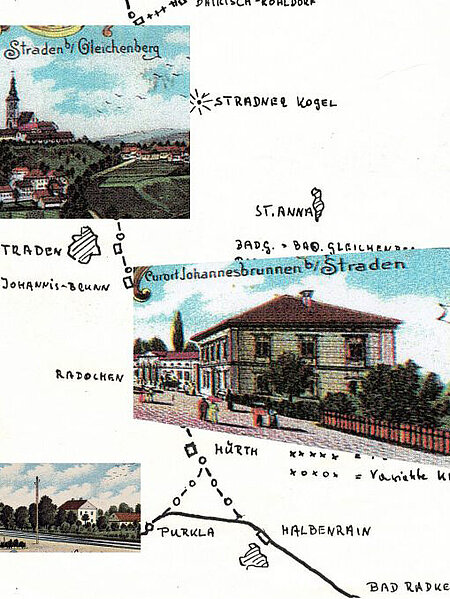 BAIRISCH-KÖHLDORF
Straden b/ Gleichenberg
STRADNER KOGEL
ST. ANNA
TRADEN
BADG. = BAD. GLEICHENB
JOHANNIS-BRUNN
Curort Johannesbrunnen b/ Straden
RADOCHEN
HÜRTH
xxxxx =
xoxox = Variante K
PURKLA
HALBENRAIN
BAD RADKE